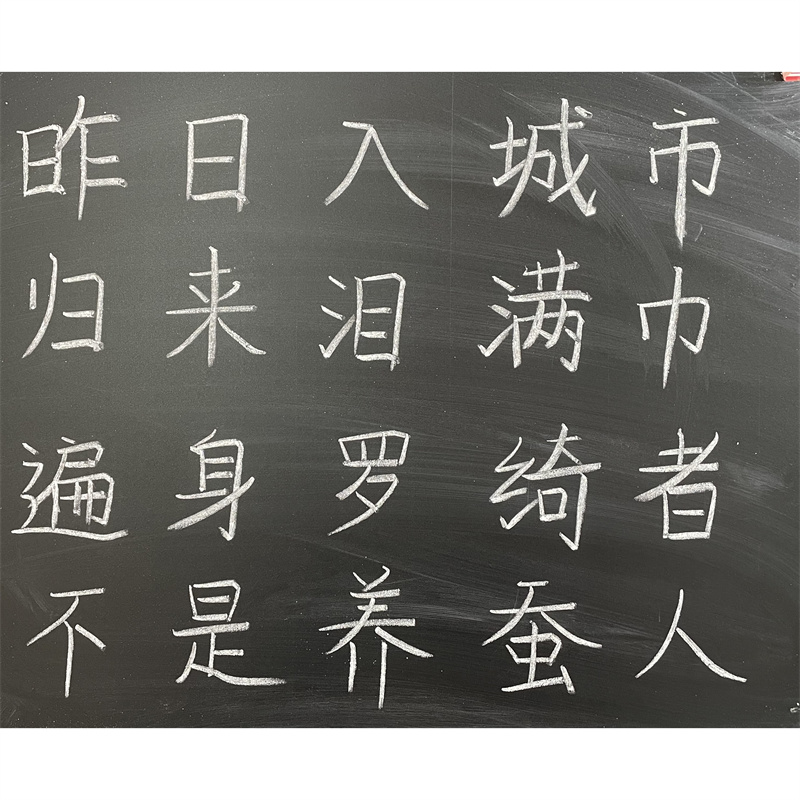 昨日入城市
归来泪满巾
遍身罗绮者
不是养蚕人